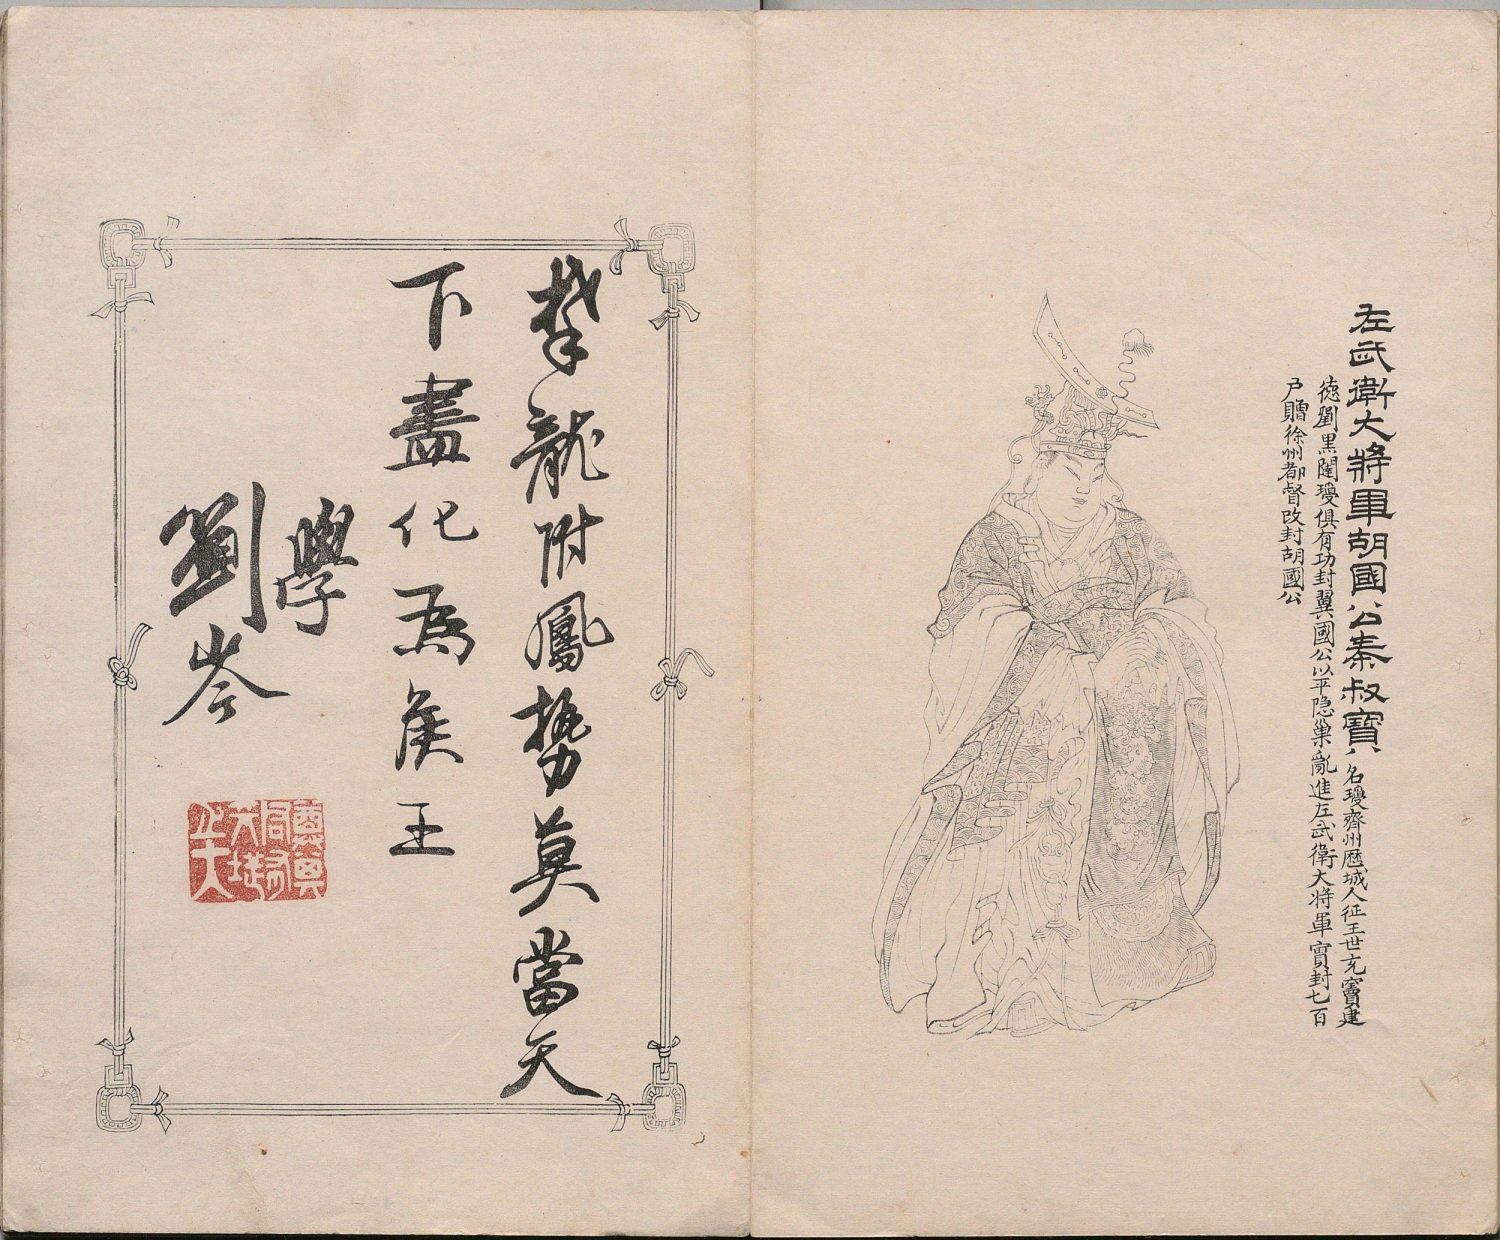 左武衛大將軍胡國公秦叔寶
名瓊齊州歷城人征王世充竇建
德劉黑闥瓊俱有功封翼國公以平隐巢亂進左武衛大將軍實封七百
戶贈徐州都督改封胡國公
攀龍附鳳勢莫當天
下盡化為矦王
學
劉
岑